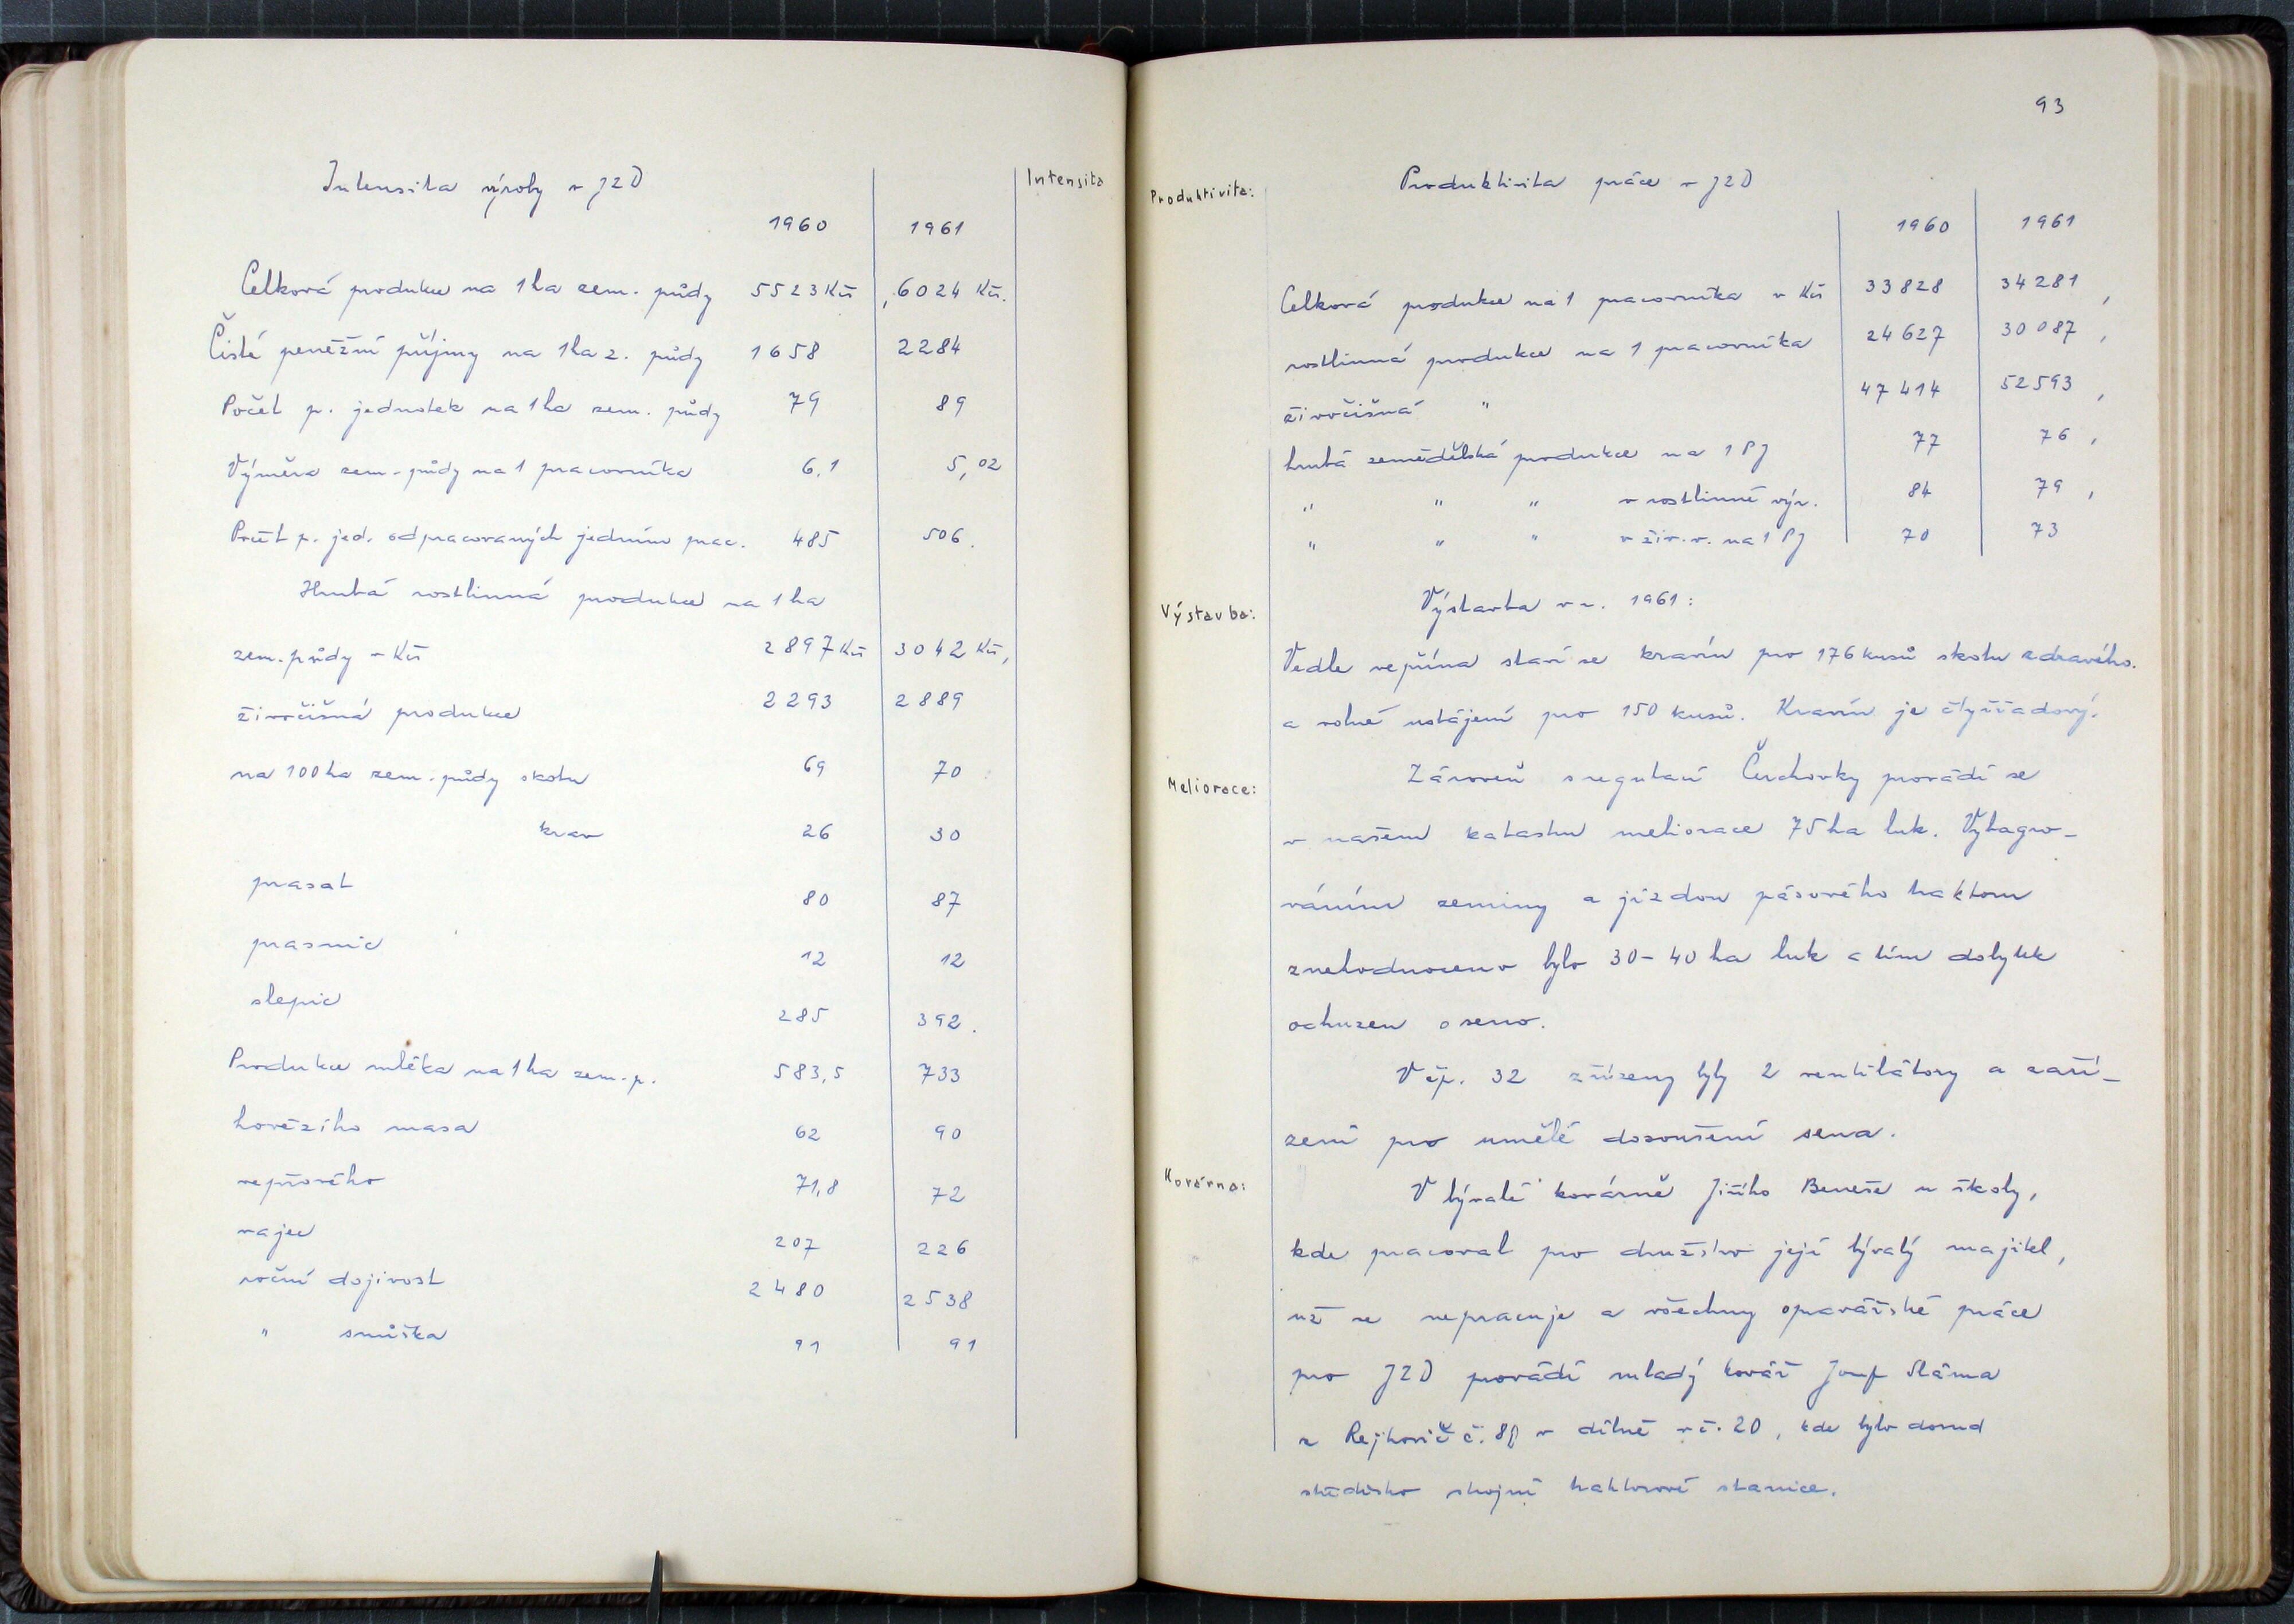 Intensita výroby v JZD
Intensita
1960 1961
Celková produkce na 1 ha zem. půdy 5523 Kčs 6024 Kčs.
Čisté peněžní příjmy na 1 ha z. půdy 1658 2284
Počet p. jednotek na 1 ha zem. půdy 79 89
Výměra zem. půdy na 1 pracovníka 6,1 5,02
Počet p. jed. odpracovaných jedním prac. 485 506.
Hrubá rostlinná produkce na 1 ha
zem. půdy v Kčs 2897 Kčs 3042 Kčs,
živočišná produkce 2293 2889
na 100 ha zem. půdy skotu 69 70
krav 26 30
prasat 80 87
prasnic 12 12
slepic 285 392.
Produkce mléka na 1 ha zem. p. 583,5 733
hovězího masa 62 90
vepřového 71,8 72
vajec 207 226
roční dojivost 2480 2538
" snůška 91 91
93
Produktivita:
Produktivita práce v JZD
1960 1961
Celková produkce na 1 pracovníka v Kčs 33828 34281,
rostlinná produkce na 1 pracovníka 24627 30087,
živočišná " 47414 52593,
hrubá zemědělská produkce na 1 PJ 77 76,
" " " v rostlinné výr. 84 79,
" " " v živ. v. na 1 PJ 70 73
Výstavba:
Výstavba v r. 1961:
Vedle vepřína staví se kravín pro 176 kusů skotu zdravého.
a volné ustájení pro 150 kusů. Kravín je čtyřřadový.
Meliorace:
Zároveň s regulací Čerchovky provádí se
v našem katastru meliorace 75 ha luk. Vybagro-
váním zeminy a jízdou pásového traktoru
znehodnoceno bylo 30-40 ha luk a tím dobytek
ochuzen o seno.
V čp. 32 zřízeny byly 2 ventilátory a zaří-
zení pro umělé dosoušení sena.
Kovárna:
V bývalé kovárně Jiřího Beneše u školy,
kde pracoval pro družstvo její bývalý majitel,
už se nepracuje a všechny opravářské práce
pro JZD provádí mladý kovář Josef Sláma
z Rejkovič č. v dílně v č. 20, kde bylo dosud
středisko strojní traktorové stanice.